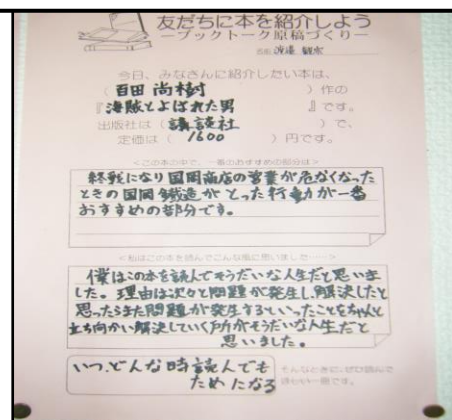 友だちに本を紹介しよう
ーブックトーク原稿づくりー
名前
今日、みなさんに紹介したい本は、
（ 百田 尚樹 ）作の
『海賊とよばれた男 』です。
出版社は（ 講談社 ）で、
定価は（ 1600 ）円です。
＜この本の中で、一番のおすすめの部分は＞
終戦になり国岡商店の営業が危なくなった
ときの国岡鐵造がとった行動が一番
おすすめの部分です。
＜私はこの本を読んでこんな風に思いました……＞
僕はこの本を読んでそうだいな人生だと思いま
した。理由は次々と問題が発生し、解決したと
思ったらまた問題が発生するといったことをちゃんと
立ち向かい解決していく方がそうだいな人生だと
思いました。
いつ、どんな時読んでも
ためになる
そんなときに、ぜひ読んで
ほしい一冊です。